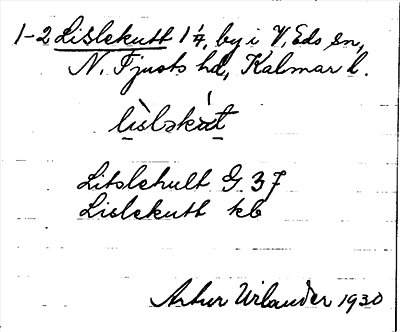 1-2 Lislekutt 1/4, by i V. Eds sn,
N. Tjusts hd, Kalmar l.
lìsləkút
Litslehult G. 37
Lislekutt kb
Artur Wilander 1930